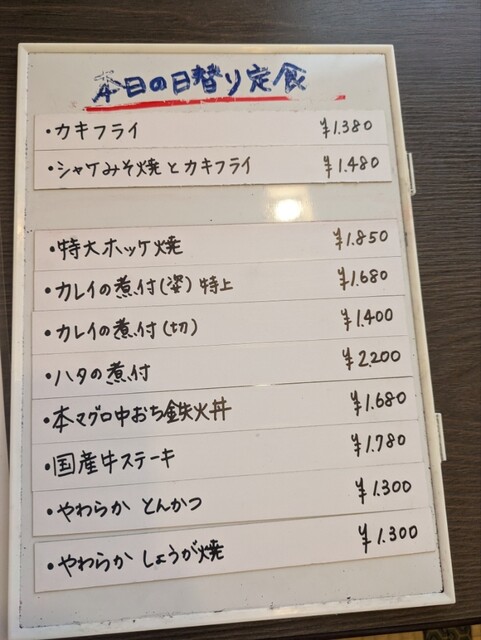 本日の日替り定食
・カキフライ ¥1.380
・シャケみそ焼とカキフライ ¥1.480
・特大ホッケ焼 ¥1.850
・カレイの煮付(姿)特上 ¥1.680
・カレイの煮付(切) ¥1.400
・ハタの煮付 ¥2.200
・本マグロ中おち鉄火丼 ¥1.680
・国産牛ステーキ ¥1.780
・やわらか とんかつ ¥1.300
・やわらか しょうが焼 ¥1.300